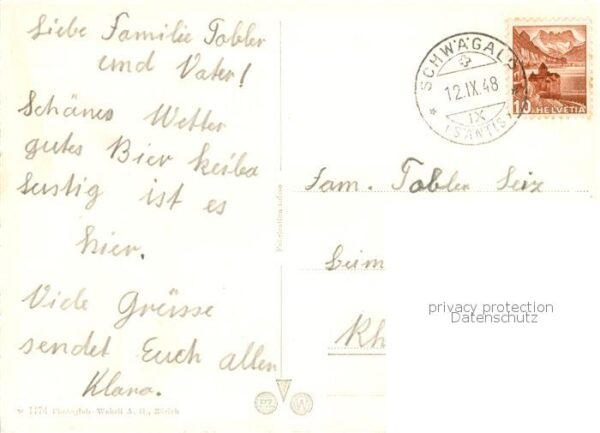 Liebe Familie Tobler
und Vater!
Schönes Wetter
gutes Bier keiba
lustig ist es
hier.
Viele Grüsse
sendet Euch allen
Klara.
1174 Photoglob-Wehrli A. G., Zürich
SCHWÄGALP
12.IX.48
IX
(SÄNTIS)
10 HELVETIA
Fam. Tobler
beim
Rh
privacy protection
Datenschutz
PZ
W